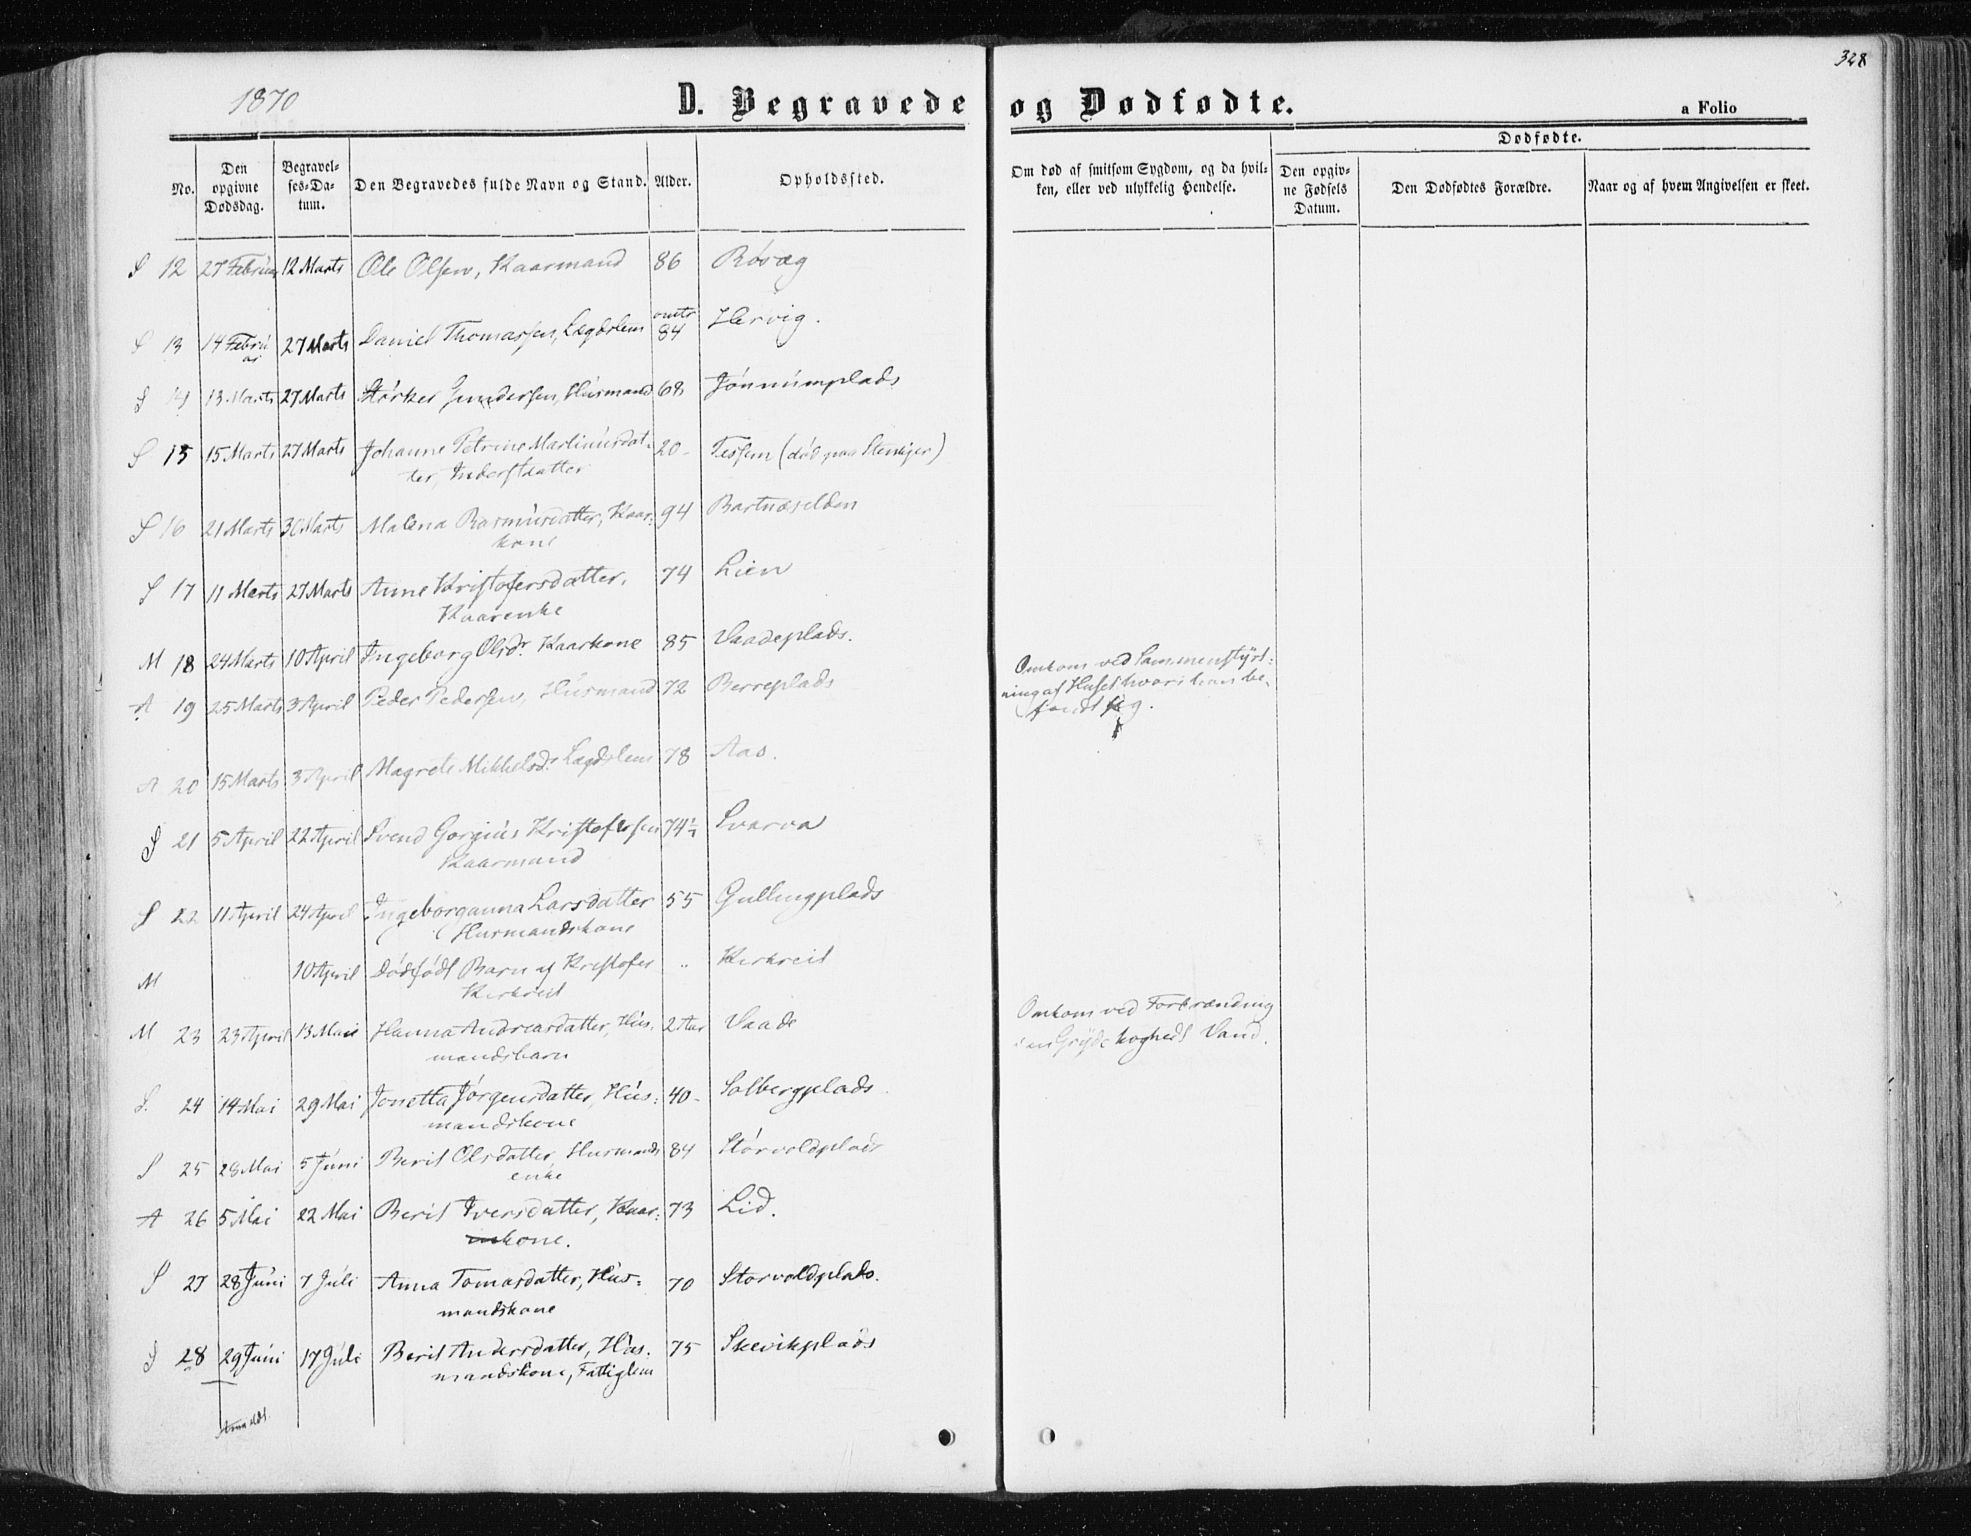 328
1870
D. Begravede og Dødfødte.
a Folio
No.
Den opgivne Dødsdag.
Begravelses-Datum.
Den Begravedes fulde Navn og Stand.
Alder.
Opholdssted.
Om død af smitsom Sygdom, og da hvilken, eller ved ulykkelig Hendelse.
Dødfødte.
Den opgivne Fødsels Datum.
Den Dødfødtes Forældre.
Naar og af hvem Angivelsen er skeet.
S 12 27 Februar 12 Marts Ole Olsen, Kaarmand 86 Røvæg
S 13 14 Februar 27 Marts Daniel Thomassen, Lægdslem 84 Hervig.
S 14 13 Marts 27 Marts Størker Gundersen, Husmand 68 Jönnumplads
S 15 15 Marts 27 Marts Johanne Petrine Martinusdat-
ter, Inderstdatter 20 Tessem (død paa Stenkjer)
S 16 21 Marts 30 Marts Malena Rasmusdatter, Kaar-
kone 94 Bartnæselden
S 17 11 Marts 27 Marts Anne Kristofersdatter,
Kaarenke 74 Lien
M 18 24 Marts 10 April Ingeborg Olsdr. Kaarkone 85 Vaadeplads.
A 19 25 Marts 3 April Peder Pedersen, Husmand 72 Berreplads
Omkom ved Sammenstyrt-
ning af Huset hvori han be-
fandt sig.
A 20 15 Marts 3 April Magrete Mikkelsd. Lægdslem 78 Aas.
S 21 5 April 22 April Svend Gorgius Kristofersen
Kaarmand 74½ Svarva
S 22 11 April 24 April Ingeborganna Larsdatter
Husmandskone 55 Gullingplads
M 10 April Dødfødt Barn af Kristofer
Kirkreit .. Kirkreit
M 23 23 April 13 Mai Hanna Andreasdatter, Hus-
mandsbarn 2 Aar Vaade
Omkom ved Forbrænding
i en Gryde kogheds Vand.
S. 24 14 Mai 29 Mai Jonetta Jørgensdatter, Hus-
mandskone 40 Solbergplads
S 25 28 Mai 5 Juni Berit Olsdatter, Husmands
enke 84 Størvoldplads
A 26 5 Mai 22 Mai Berit Iversdatter, Kaar-
kone. 73 Lid.
S 27 28 Juni 7 Juli Anna Tomasdatter, Hus-
mandskone 70 Storvoldplads.
S 28 29 Juni 17 Juli Berit Andersdatter, Hus-
mandskone, Fattiglem 75 Skevikplads